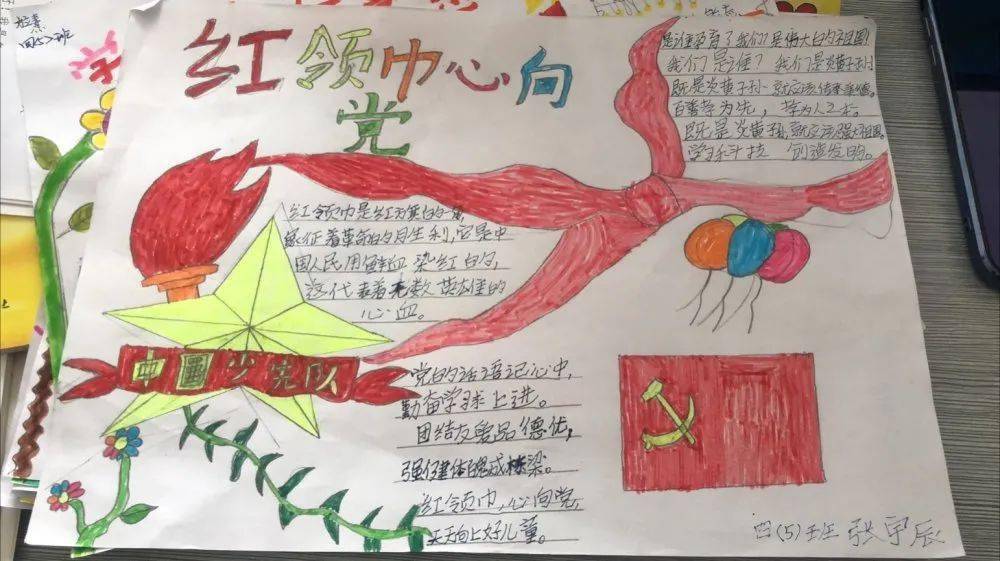 红领巾心向
党
是谁孕育了我们?是伟大的祖国!
我们是谁?我们是炎黄子孙!
既是炎黄子孙 就应该传承美德。
百善孝为先,孝为人之本。
既是炎黄子孙,就应该强大祖国。
学习科技 创造发明。
红领巾是红旗的一角,
象征着革命的胜利,它是中
国人民用鲜血染红的,
这代表着无数英雄的
心血。
中国少先队
党的话语记心中,
勤奋学习求上进。
团结友爱品德优,
强健体魄成栋梁。
红领巾,心向党,
天天向上好儿童。
四(5)班 张宇辰
四(5)班